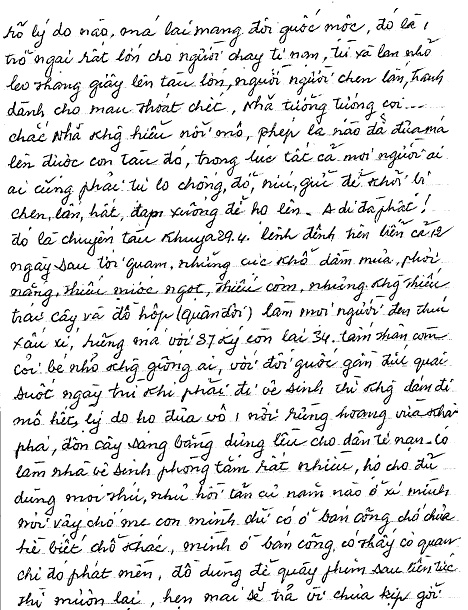 rõ lý do nào, má lại mang đôi guốc mộc, đó là 1
trở ngại rất lớn cho người chạy tị nạn, từ xà lan nhỏ
leo thang giây lên tàu lớn, người người chen lấn, tranh
dành cho mau thoát chết, Nhã tưởng tượng coi...
chắc Nhã khg hiểu nổi mô, phép lạ nào đã đưa má
lên được con tàu đó, trong lúc tất cả mọi người ai
ai cũng phải tự lo chống, đỡ, níu, giữ để khỏi bị
chen, lấn, hất, đạp xuống để họ lên. A di đà phật!
đó là chuyến tàu khuya 29.4. lênh đênh trên biển cả 12
ngày sau tới Guam, những cực khổ dầm mưa, phơi
nắng, thiếu nước ngọt, thiếu cơm, nhưng khg thiếu
trái cây và đồ hộp (quân đội) làm mọi người đen thui
xấu xí, riêng má với 37 ký còn lại 34. tấm thân còm
cõi bé nhỏ khg giống ai, với đôi guốc gần đứt quai
suốt ngày trừ khi phải đi vệ sinh thì khg dám đi
mô hết, lý do họ đưa vô 1 nơi rừng hoang vừa khai
phá, đốn cây sang bằng dựng lều cho dân tị nạn. Có
làm nhà vệ sinh phòng tắm rất nhiều, họ cho đủ
dùng mọi thứ, như hồi tản cư năm nào ở xí mình
mới vậy chớ mẹ con mình dù có ở bán công chớ chưa
hề biết chỗ khác, mình ở bán công có thấy cơ quan
chi đó phát mền, đồ dùng để quây phim sau liền tức
thì mượn lại, hẹn mai sẽ trả rồi chưa kịp gởi